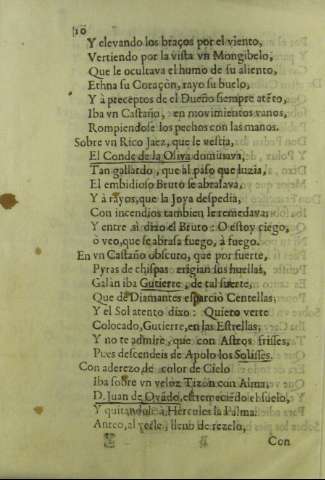 10
Y elevando los braços por el viento,
Vertiendo por la vista vn Mongibelo,
Que le ocultava el humo de su aliento,
Ethna su Coraçon, rayo su buelo,
Y à preceptos de el Dueño siempre atēto,
Iba vn Castaño, en movimientos vanos,
Rompiendose los pechos con las manos.
Sobre vn Rico Jaez, que le vestia,
El Conde de la Oliva domusava,
Tan gallardo, que al paso que luzia,
El embidioso Bruto se abrasava,
Y à rayos, que la Joya despedia,
Con incendios tambien le remedava;
Y entre si dixo el Bruto: O estoy ciego,
ò veo, que se abrasa fuego, à fuego.
En vn Castaño obscuro, que por fuerte,
Pyras de chispas erigian sus huellas,
Galàn iba Gutierre, de tal suerte,
Que de Diamantes esparciò Centellas;
Y el Sol atento dixo: Quiero verte
Colocado, Gutierre, en las Estrellas;
Y no te admire, que con Astros frisses,
Pues descendeis de Apolo los Solisses.
Con aderezo, de color de Cielo
Iba sobre vn veloz Tizòn con Alma,
D. Juan de Ovãdo, estremeciẽdo el suelo,
Y quitandole à Hercules la Palma:
Anteo, al verle, lleno de rezelo,
Con